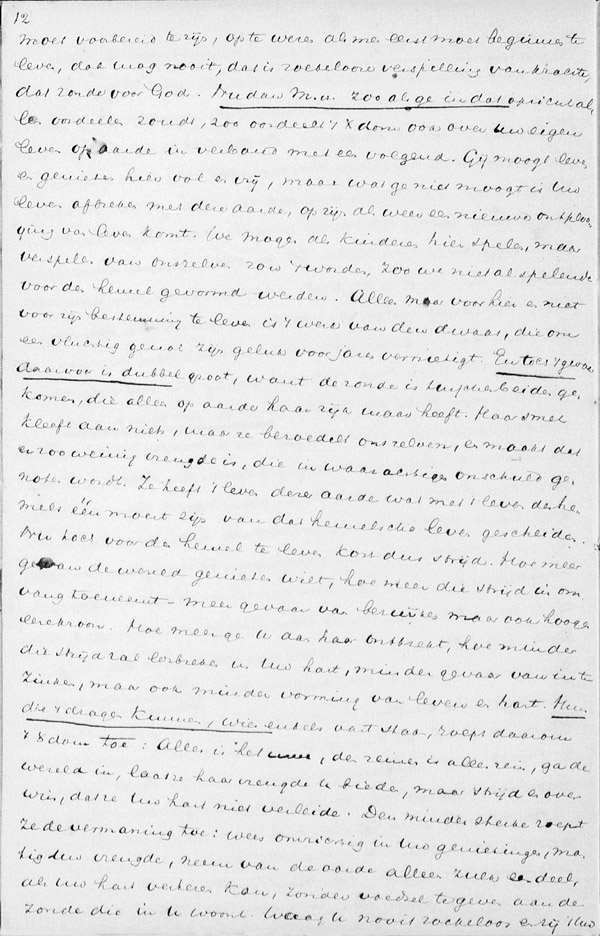 12
moet voorbereid te zijn, op te weren als men eerst moet beginnen te
leven, dat mag nooit, dat is roekeloose verspilling van krachten,
dat zonde voor God. Nu dan M.H. zooals ge in dat opzicht al-
les oordeelen zoudt, zoo oordeelt 't Xdom ook over Uw eigen
leven op aarde in verband met een volgend. Gij moogt leven
en genieten hier vol en vrij, maar wat ge niet moogt is Uw
leven afbreken met deze aarde, op zijn als weer een nieuwe ontplooi-
ging van leven komt. We mogen als kinderen hier spelen, maar
verspelen van onszelven zou 't worden, zoo we niet al spelende
voor den hemel gevormd werden. Alleen maar voor hier en niet
voor zijn bestemming te leven is 't werk van den dwaas, die om
een vluchtig genot zijn geluk voor jaren vernietigt. En toch 't gevaar
daarvoor is dubbel groot, want de zonde is tusschenbeiden ge-
komen, die alles op aarde haar zijn waas heeft. Haar smet
kleeft aan niets, maar ze bezoedelt onszelven, en maakt dat
er zoo weinig vreugde is, die in waarachtige onschuld ge-
noten wordt. Ze heeft 't leven dezer aarde wat met 't leven des he-
mels één moest zijn van dat hemelsche leven gescheiden.
Nu toch voor den hemel te leven kost dus strijd. Hoe meer
ge van de wereld genieten wilt, hoe meer die strijd in om-
vang toeneemt - meer gevaar van bezwijken maar ook hooger
eerekroon. Hoe meer ge U aan haar onttrekt, hoe minder
die strijd zal losbreken in Uw hart, minder gevaar van in te
zinken, maar ook minder vorming van leven en hart. Hun
die 't dragen kunnen, wier enkels vast staan, roept daarom
't Xdom toe: Alles is het uwe, den reinen is alles rein, ga de
wereld in, laat ze haar vreugde U bieden, maar strijd en over-
win, dat ze Uw hart niet verleide. Den minder sterke roept
ze de vermaning toe: wees omzichtig in Uw genietingen, ma-
tig Uw vreugde, neem van de aarde alleen zulk een deel,
als Uw hart verteren kan, zonder voedsel te geven aan de
zonde die in U woont. Waag U nooit roekeloos en zij Uw